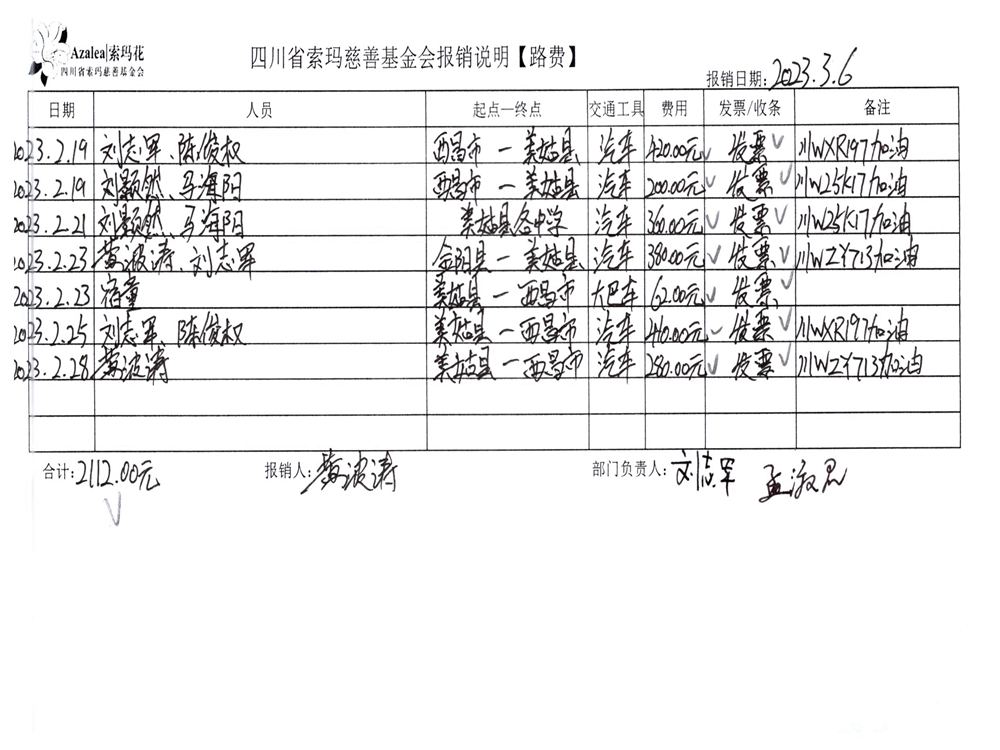 Azalea|索玛花
四川省索玛慈善基金会
四川省索玛慈善基金会报销说明【路费】
报销日期:2023.3.6
日期 人员 起点—终点 交通工具 费用 发票/收条 备注
2023.2.19 刘志军、陈俊权 西昌市—美姑县 汽车 420.00元 发票 川WXR197加油
2023.2.19 刘颢然、马海阳 西昌市—美姑县 汽车 200.00元 发票 川W25K17加油
2023.2.21 刘颢然、马海阳 美姑县各中学 汽车 360.00元 发票 川W25K17加油
2023.2.23 黄波涛、刘志军 金阳县—美姑县 汽车 380.00元 发票 川WZY713加油
2023.2.23 宿童 美姑县—西昌市 大巴车 62.00元 发票
2023.2.25 刘志军 陈俊权 美姑县—西昌市 汽车 410.00元 发票 川WXR197加油
2023.2.28 黄波涛 美姑县—西昌市 汽车 280.00元 发票 川WZY713加油
合计:2112.00元 报销人:黄波涛 部门负责人:刘志军